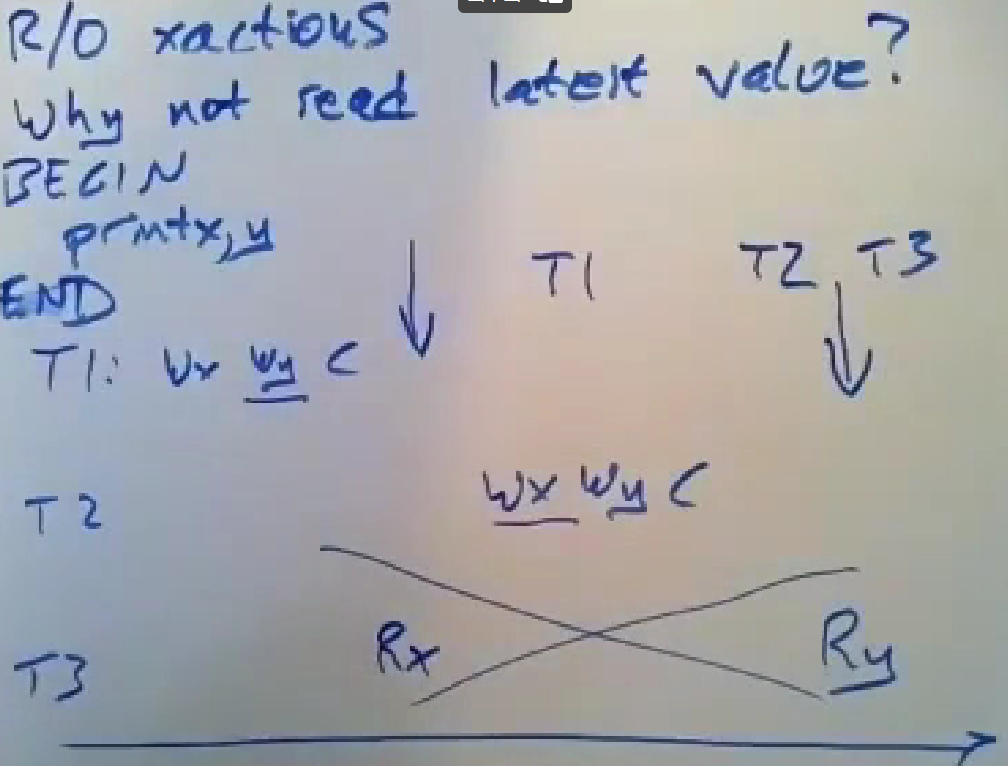 R/O xactions
Why not read latest value?
BEGIN
print x, y
END
T1 T2 T3
T1: Wx Wy C
T2 Wx Wy C
T3 Rx Ry